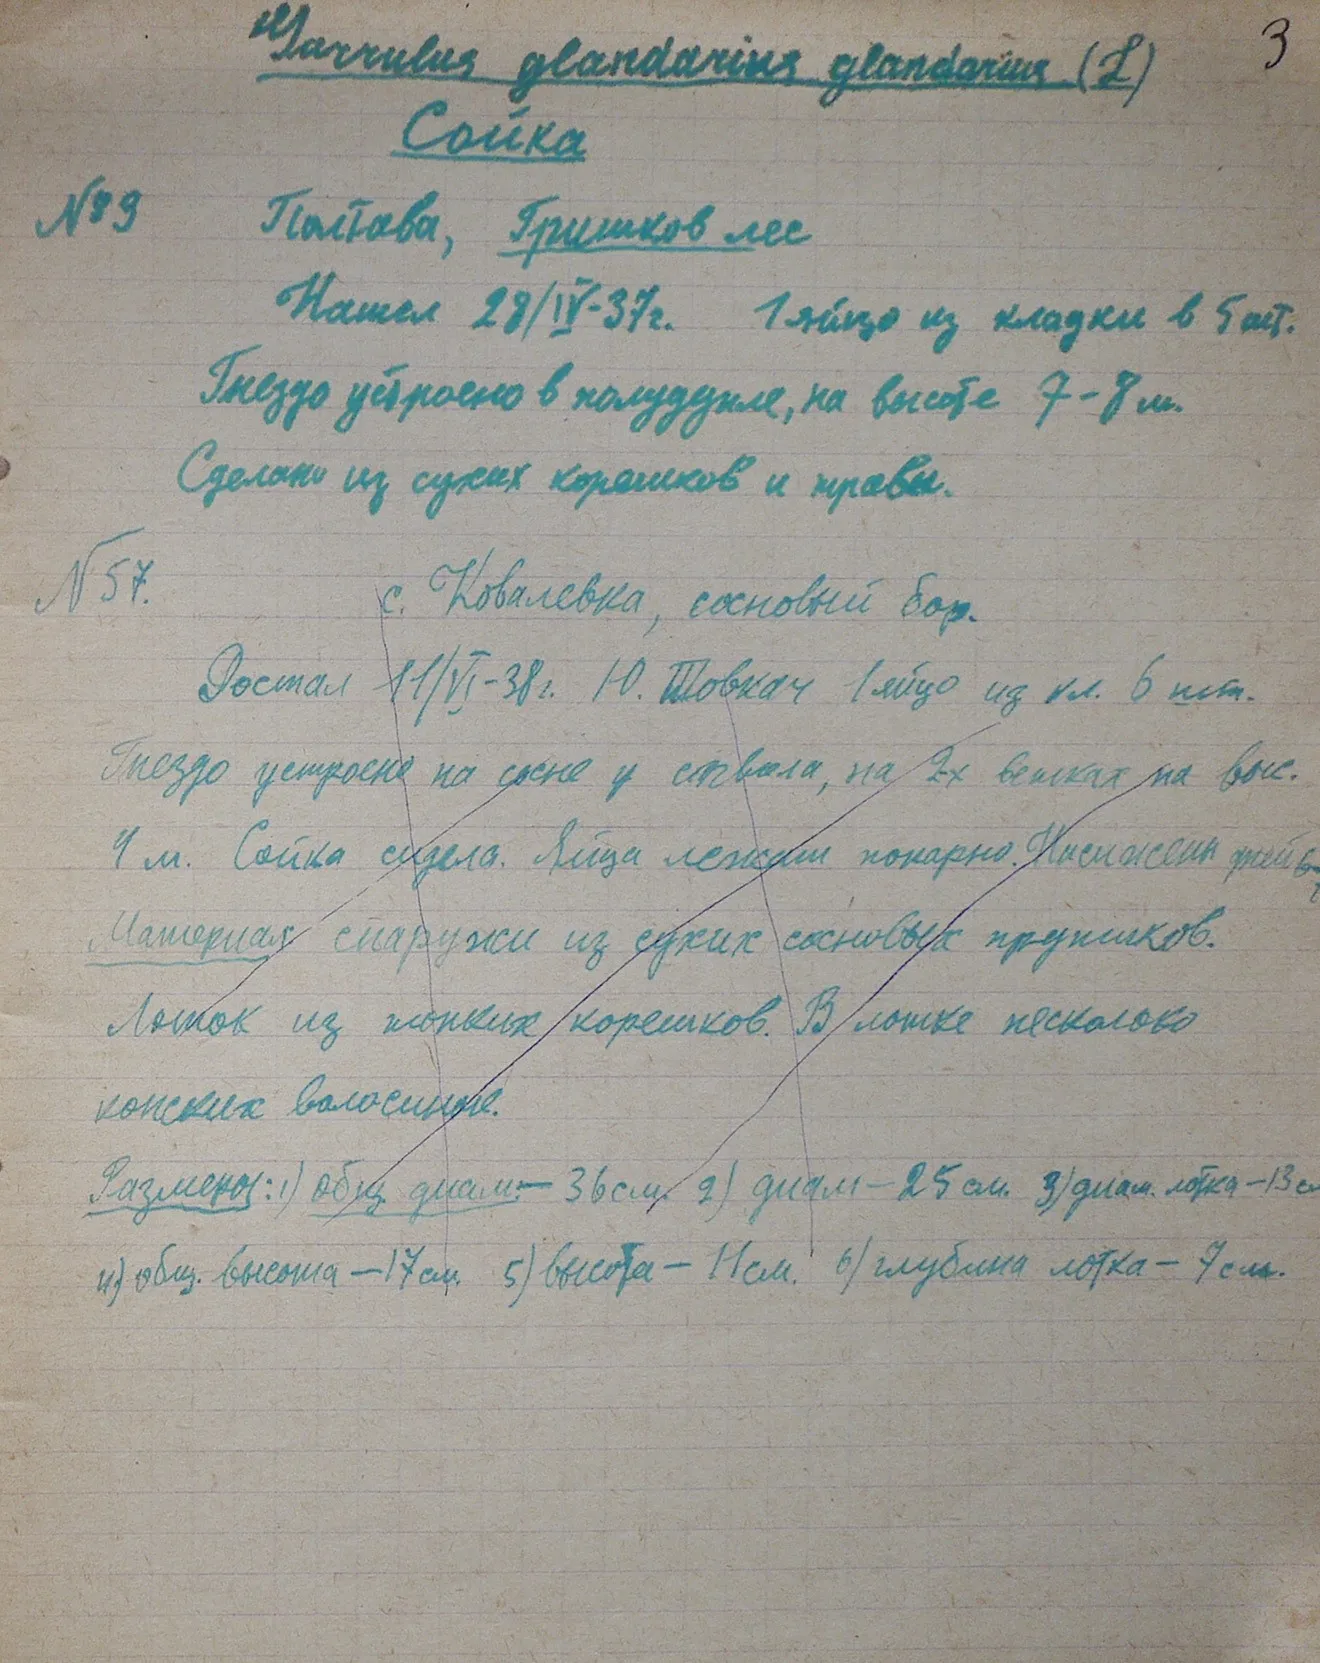 3
Garrulus glandarius glandarius (L)
Сойка
№89 Полтава, Гришков лес
Нашел 28/IV-37г. 1 яйцо из кладки в 5 шт.
Гнездо устроено в полудупле, на высоте 7-8 м.
Сделано из сухих корешков и травы.
№57. с. Ковалевка, сосновый бор.
Достал 11/VI-38г. Ю. Товкач 1 яйцо из кл. 6 шт.
Гнездо устроено на сосне у ствола, на 2х ветках на выс.
4 м. Сойка сидела. Яйца лежали попарно. Насижены
Материал снаружи из сухих сосновых прутиков.
Лоток из тонких корешков. В лотке несколько
конских волосинок.
Размеры: 1) общ. диам. - 36 см. 2) диам - 25 см. 3) диам. лотка - 13 см
4) общ. высота - 17 см. 5) высота - 11 см. 6) глубина лотка - 7 см.